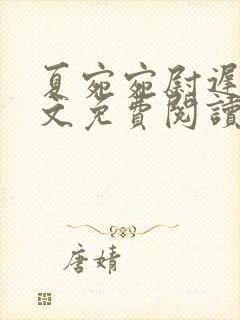 夏宛宛尉遲
文免費閱讀
唐婧